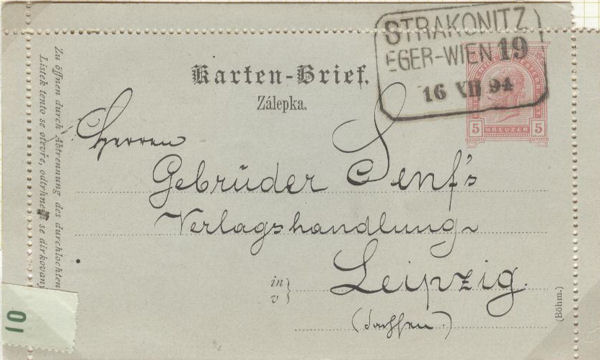 STRAKONITZ
EGER-WIEN 19
16 XII 94
Karten-Brief.
Zálepka.
5 KREUZER 5
Herren
Gebrüder Senf's
Verlagshandlung
in
v
Leipzig.
(Sachsen.)
(Böhm.)
Zu öffnen durch Abtrennung des durchlochten
Lístek tento se otevře, odtrhne se dírkovaný
10